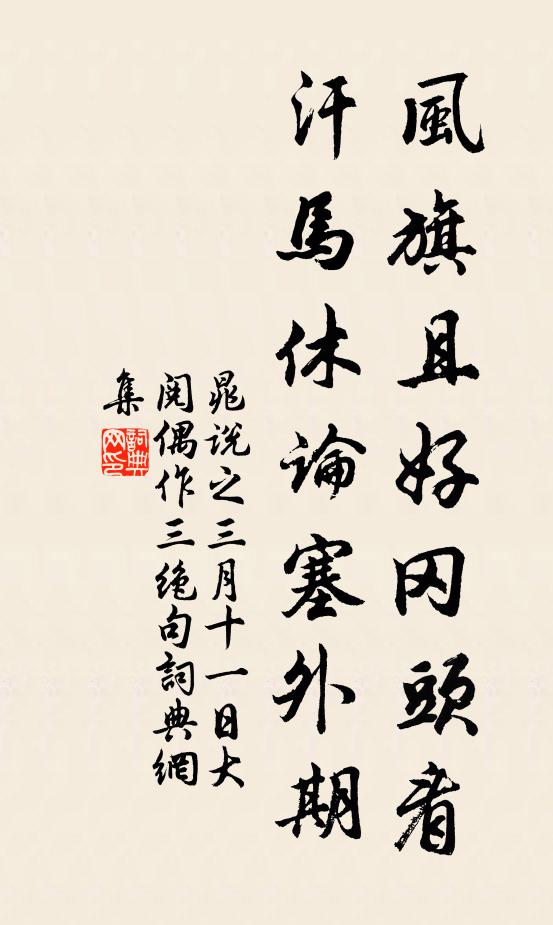 風旗且好冈頭看
汗馬休論塞外期
晁説之三月十一日大
閱偶作三絶句詞典網
集
詞典
网印